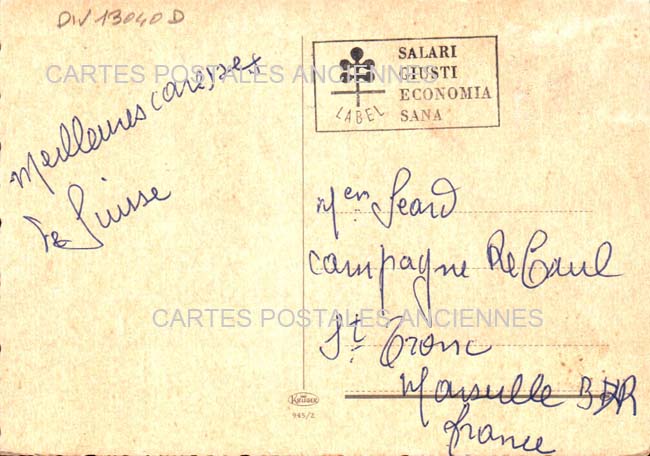 DIV 13040 D
SALARI
GIUSTI
ECONOMIA
SANA
LABEL
CARTES POSTALES ANCIENNES
Meilleures caresses
de Suisse
Men Seard
campagne
St Tronc
Marseille BDR
france
CARTES POSTALES ANCIENNES
KRÜGER
945/2